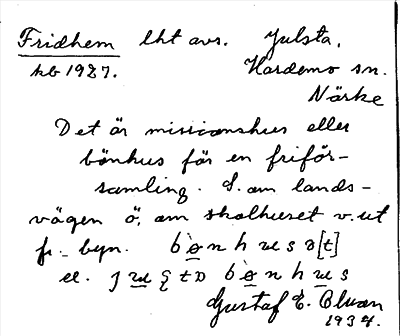 Fridhem lht avs. Julsta,
hb 1927. Hardemo sn.
Närke
Det är missionshus eller
bönhus för en friför-
samling. S. om lands-
vägen ö. om skolhuset v. ut
fr. byn.
el.
Gustaf E. Bluan
1934.